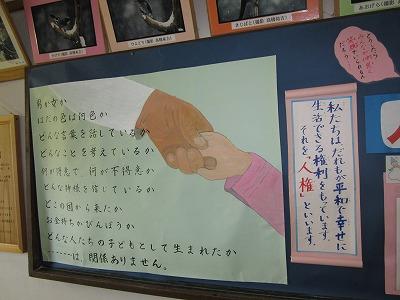 男か女か
はだの色は何色か
どんな言葉を話しているか
どんなことを考えているか
何が得意で 何が不得意か
どんな神様を信じているか
どこの国から来たか
お金持ちかびんぼうか
どんな人たちの子どもとして生まれたか
……は、関係ありません。
私たちはだれもが平和で幸せに
生活できる権利をもっています。
それを「人権」といいます。